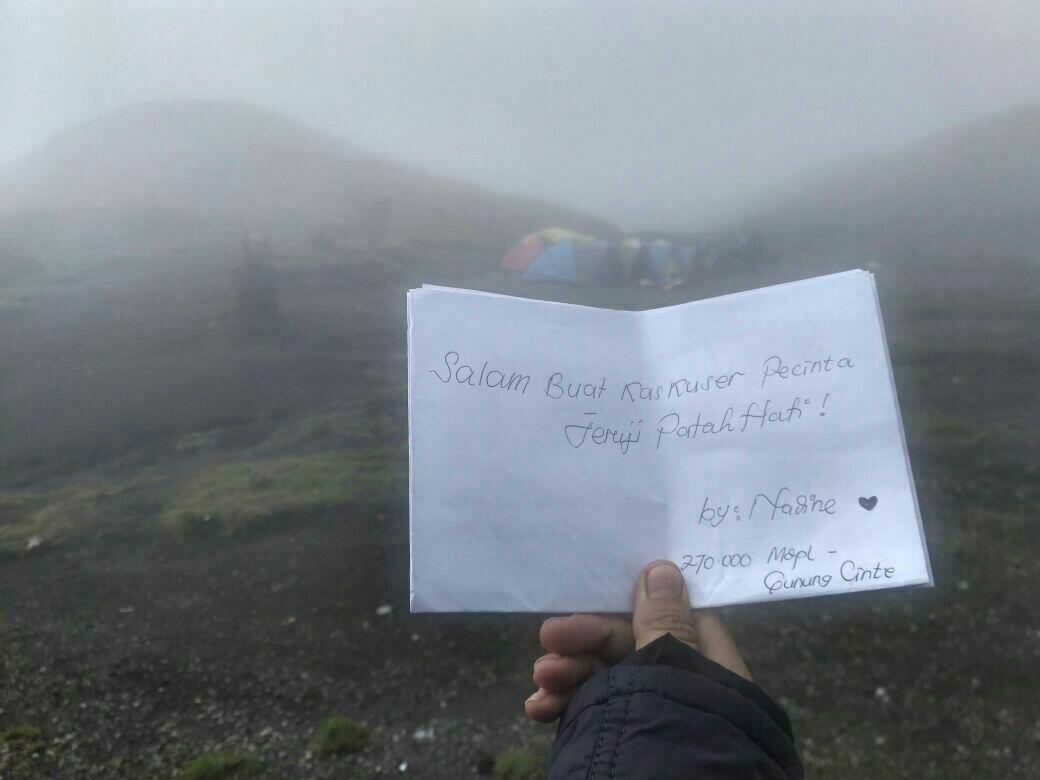 Salam Buat Kaskuser Pecinta
Jeruji Patah Hati !
by: Nadine ♥
270.000 Mdpl -
Gunung Cinte